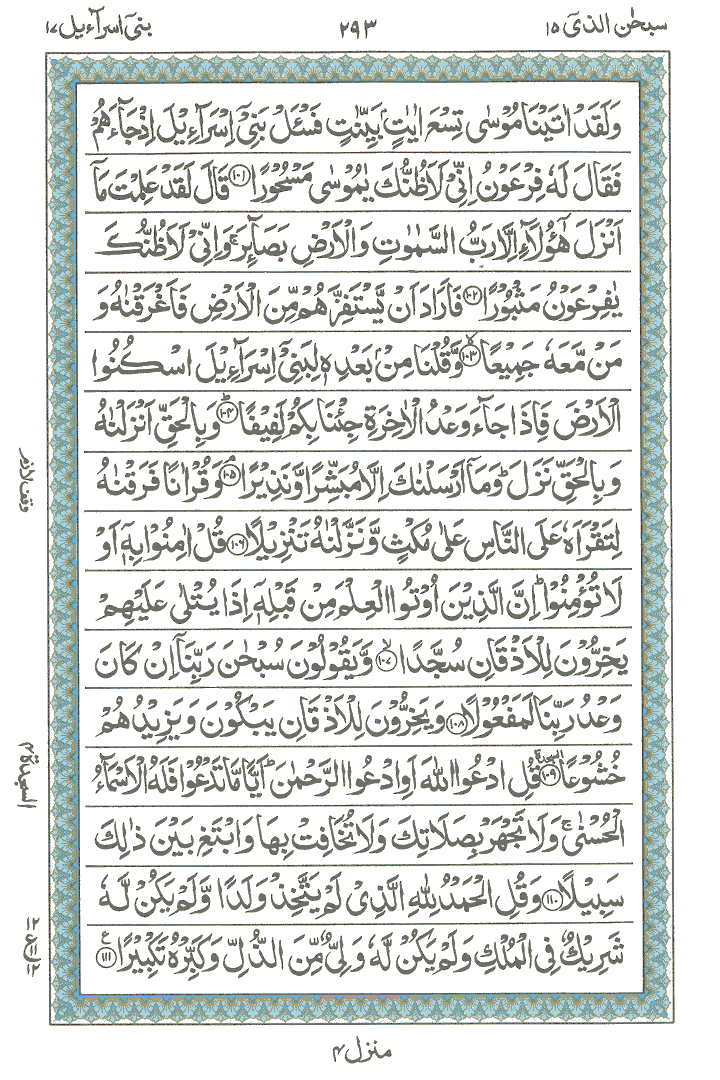 سبحٰن الذیٓ ۱۵
۲۹۳
بنیٓ اسرآءیل ۱۷
وَلَقَدْ اٰتَیْنَا مُوْسٰی تِسْعَ اٰیٰتٍۭ بَیِّنٰتٍ فَسْـَٔلْ بَنِیْۤ اِسْرَآءِیْلَ اِذْ جَآءَهُمْ
فَقَالَ لَهٗ فِرْعَوْنُ اِنِّیْ لَاَظُنُّكَ یٰمُوْسٰی مَسْحُوْرًا ﴿۱۰۱﴾ قَالَ لَقَدْ عَلِمْتَ مَاۤ
اَنْزَلَ هٰۤؤُلَآءِ اِلَّا رَبُّ السَّمٰوٰتِ وَالْاَرْضِ بَصَآئِرَ ۚ وَاِنِّیْ لَاَظُنُّكَ
یٰفِرْعَوْنُ مَثْبُوْرًا ﴿۱۰۲﴾ فَاَرَادَ اَنْ یَّسْتَفِزَّهُمْ مِّنَ الْاَرْضِ فَاَغْرَقْنٰهُ وَ
مَنْ مَّعَهٗ جَمِیْعًا ﴿۱۰۳﴾ۙ وَّقُلْنَا مِنْۢ بَعْدِهٖ لِبَنِیْۤ اِسْرَآءِیْلَ اسْكُنُوا
الْاَرْضَ فَاِذَا جَآءَ وَعْدُ الْاٰخِرَةِ جِئْنَا بِكُمْ لَفِیْفًا ﴿۱۰۴﴾ؕ وَبِالْحَقِّ اَنْزَلْنٰهُ
وَبِالْحَقِّ نَزَلَ ؕ وَمَاۤ اَرْسَلْنٰكَ اِلَّا مُبَشِّرًا وَّنَذِیْرًا ﴿۱۰۵﴾ۘ وَقُرْاٰنًا فَرَقْنٰهُ
لِتَقْرَاَهٗ عَلَی النَّاسِ عَلٰی مُكْثٍ وَّنَزَّلْنٰهُ تَنْزِیْلًا ﴿۱۰۶﴾ قُلْ اٰمِنُوْا بِهٖۤ اَوْ
لَا تُؤْمِنُوْا ؕ اِنَّ الَّذِیْنَ اُوْتُوا الْعِلْمَ مِنْ قَبْلِهٖۤ اِذَا یُتْلٰی عَلَیْهِمْ
یَخِرُّوْنَ لِلْاَذْقَانِ سُجَّدًا ﴿۱۰۷﴾ۙ وَّیَقُوْلُوْنَ سُبْحٰنَ رَبِّنَاۤ اِنْ كَانَ
وَعْدُ رَبِّنَا لَمَفْعُوْلًا ﴿۱۰۸﴾ وَیَخِرُّوْنَ لِلْاَذْقَانِ یَبْكُوْنَ وَیَزِیْدُهُمْ
خُشُوْعًا ﴿۱۰۹﴾ السجدة قُلِ ادْعُوا اللّٰهَ اَوِ ادْعُوا الرَّحْمٰنَ ؕ اَیًّا مَّا تَدْعُوْا فَلَهُ الْاَسْمَآءُ
الْحُسْنٰی ۚ وَلَا تَجْهَرْ بِصَلَاتِكَ وَلَا تُخَافِتْ بِهَا وَابْتَغِ بَیْنَ ذٰلِكَ
سَبِیْلًا ﴿۱۱۰﴾ وَقُلِ الْحَمْدُ لِلّٰهِ الَّذِیْ لَمْ یَتَّخِذْ وَلَدًا وَّلَمْ یَكُنْ لَّهٗ
شَرِیْكٌ فِی الْمُلْكِ وَلَمْ یَكُنْ لَّهٗ وَلِیٌّ مِّنَ الذُّلِّ وَكَبِّرْهُ تَكْبِیْرًا ﴿۱۱۱﴾ ع
وقف لازم
السجدة ۴
ع ۱۲ ۱۱ ۱۲
منزل ۴